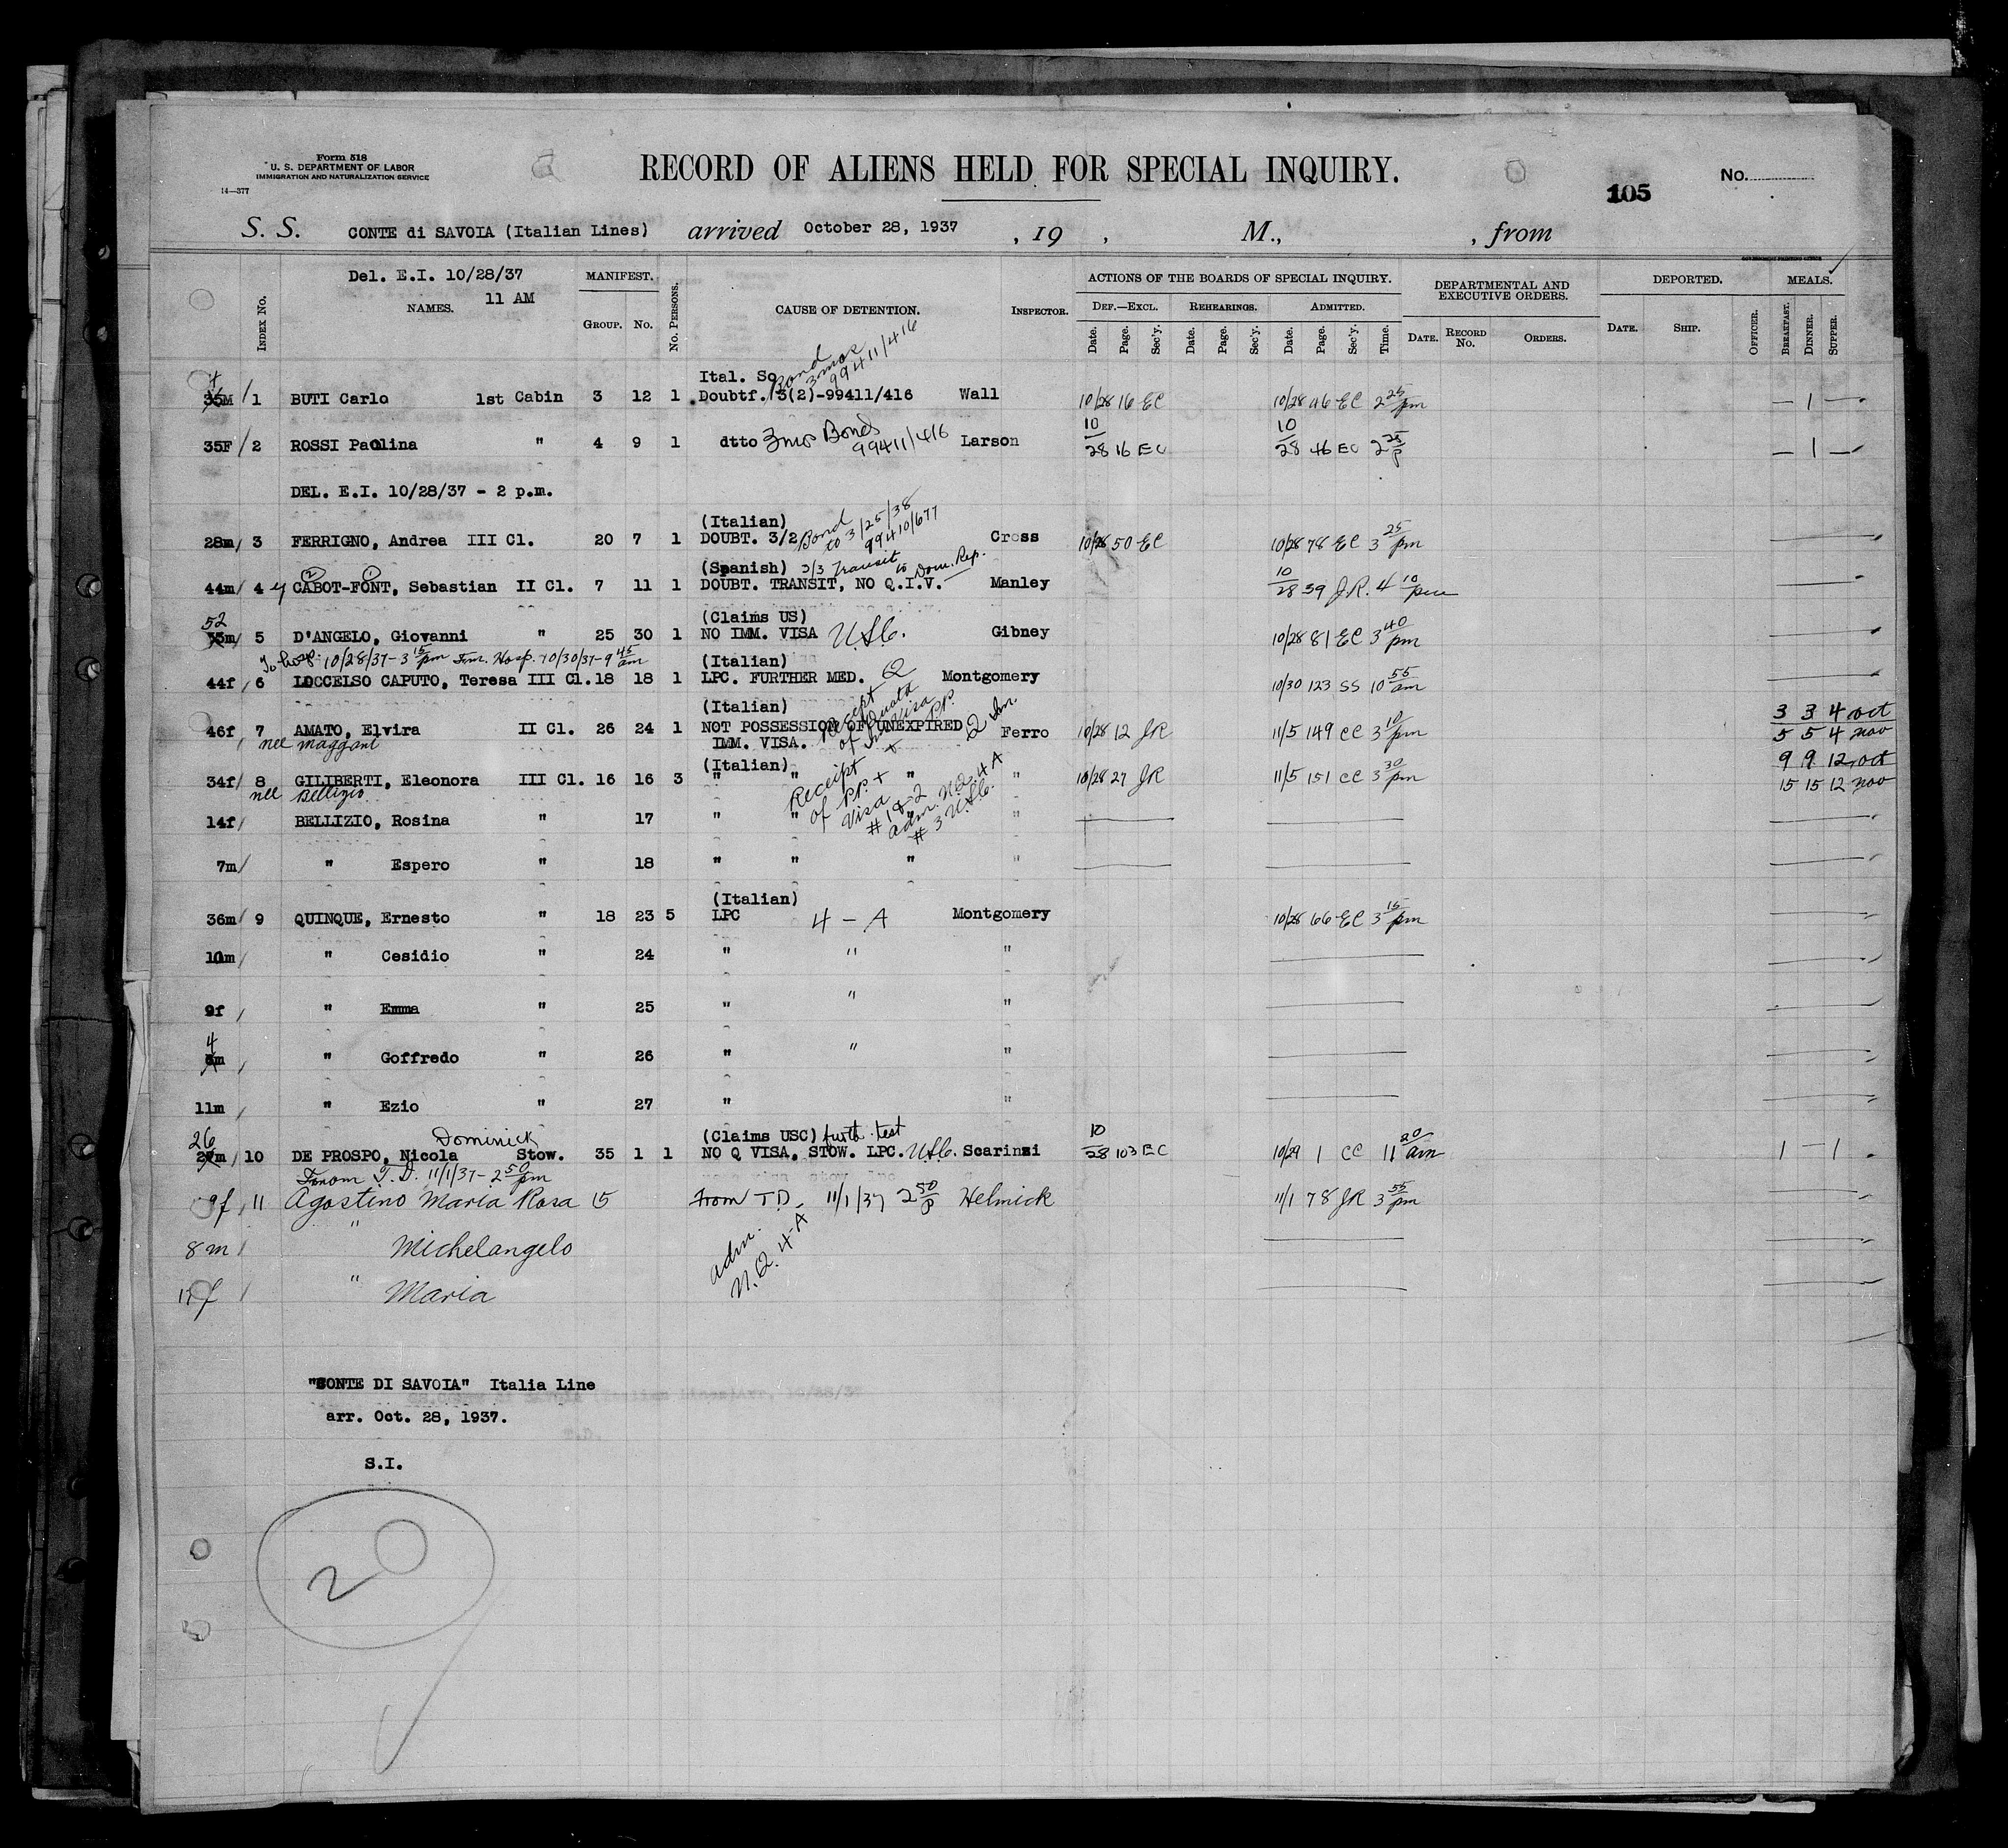 Form 518
U. S. DEPARTMENT OF LABOR
IMMIGRATION AND NATURALIZATION SERVICE
14—377
RECORD OF ALIENS HELD FOR SPECIAL INQUIRY.
105
No.
S. S. CONTE di SAVOIA (Italian Lines) arrived October 28, 1937 , 19 , M., , from
Index No. Del. E.I. 10/28/37 11 AM NAMES. MANIFEST. Group. No. No. Persons. CAUSE OF DETENTION. Inspector. ACTIONS OF THE BOARDS OF SPECIAL INQUIRY. DEPARTMENTAL AND EXECUTIVE ORDERS. DEPORTED. MEALS.
Def.—Excl. Rehearings. Admitted.
Date. Page. Sec'y. Date. Page. Sec'y. Date. Page. Sec'y. Time. Date. Record No. Orders. Date. Ship. Officer. Breakfast. Dinner. Supper.
Ital. So Bond 3 mos 99411/416
35M / 1 BUTI Carlo 1st Cabin 3 12 1 Doubtf. 3(2)-99411/416 Wall 10/28 16 EC 10/28 46 EC 2 25 pm — 1 —
35F / 2 ROSSI Paolina " 4 9 1 dtto 3 mos Bond 99411/416 Larson 10/28 16 EC 10/28 46 EC 2 25 p — 1 —
DEL. E.I. 10/28/37 - 2 p.m.
(Italian) Bond to 3/25/38 99410/677
28m / 3 FERRIGNO, Andrea III Cl. 20 7 1 DOUBT. 3/2 Cross 10/28 50 EC 10/28 78 EC 3 25 pm
(Spanish) 3/3 Transit to Dom. Rep.
44m / 4 CABOT-FONT, Sebastian II Cl. 7 11 1 DOUBT. TRANSIT, NO Q.I.V. Manley 10/28 39 JR. 4 10 pm
52 (Claims US)
55m / 5 D'ANGELO, Giovanni " 25 30 1 NO IMM. VISA USC. Gibney 10/28 81 EC 3 40 pm
To Hosp. 10/28/37 - 3 15 pm Fm. Hosp. 10/30/37 - 9 45 am (Italian)
44f / 6 LOCCELSO CAPUTO, Teresa III Cl. 18 18 1 LPC. FURTHER MED. Q Montgomery 10/30 123 SS 10 55 am
(Italian) Receipt of Quota Im Visa + PP. 3 3 4 oct
46f / 7 AMATO, Elvira II Cl. 26 24 1 NOT POSSESSION OF UNEXPIRED Ferro 10/28 12 JR 11/5 149 CC 3 10 pm 5 5 4 nov
nee Maggant IMM. VISA.
(Italian) 9 9 12 oct
34f / 8 GILIBERTI, Eleonora III Cl. 16 16 3 " " " " 10/28 27 JR 11/5 151 CC 3 30 pm 15 15 12 nov
nee Bellizio Receipt of PP. + Visa #1 & 2 adm. N.Q. 4 A #3 USC.
14f / BELLIZIO, Rosina " 17 " " "
7m / " Espero " 18 " " " "
(Italian)
36m / 9 QUINQUE, Ernesto " 18 23 5 LPC 4 - A Montgomery 10/28 66 EC 3 15 pm
10m / " Cesidio " 24 " " "
9f / " Emma " 25 " " "
4
5m / " Goffredo " 26 " " "
11m / " Ezio " 27 " "
26 Dominick (Claims USC) furth. test
27m / 10 DE PROSPO, Nicola Stow. 35 1 1 NO Q VISA, STOW. LPC. USC. Scarinzi 10/28 103 EC 10/29 1 CC 11 20 am 1 — 1
From T.D. 11/1/37 - 2 50 pm
9f / 11 Agostino Maria Rosa 15 From T.D. 11/1/37 2 50 p Helmick 11/1 78 JR 3 55 pm
8m / " Michelangelo adm. N.Q. 4-A
f / " Maria
"CONTE DI SAVOIA" Italia Line
arr. Oct. 28, 1937.
S.I.
20